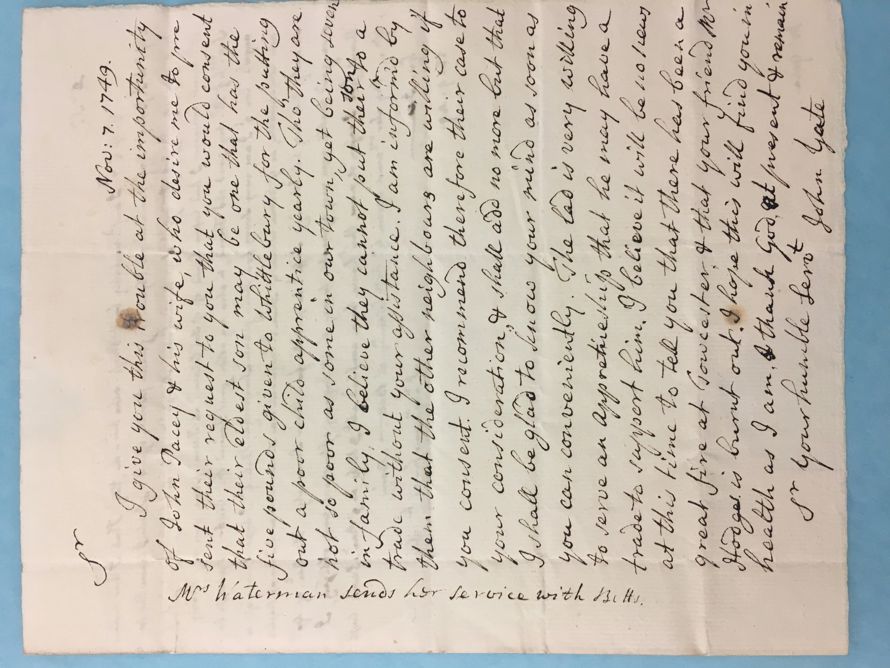 Nov: 7. 1749.
Sr
I give you this trouble at the importunity
of John Pacey & his wife, who desire me to pre
sent their request to you that you would consent
that their eldest son may be one that has the
five pounds given to Whittlebury for the putting
out a poor child apprentice yearly. Tho' they are
not so poor as some in our town, yet being seven
in family, I believe they cannot put their son to a
trade without your assistance. I am inform'd by
them that the other neighbours are willing if
you consent. I recommend therefore their case to
your consideration, & shall add no more but that
I shall be glad to know your mind as soon as
you can conveniently. The lad is very willing
to serve an apprenticeship that he may have a
trade to support him. I believe it will be no news
at this time to tell you that there has been a
great fire at Towcester & that your friend Mr
Hodges is burnt out. I hope this will find you in
health as I am, I thank God, at present & remain
Sr your humble Servt John Yate
Mrs Waterman sends her service with Betts.